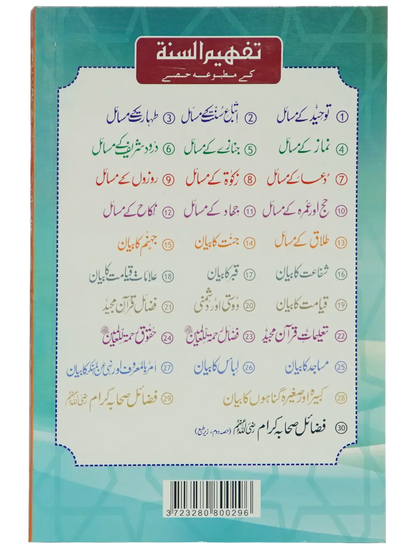 تفہیم السنۃ
کے مطبوعہ حصے
① توحید کے مسائل ② اتباع سنت کے مسائل ③ طہارت کے مسائل
④ نماز کے مسائل ⑤ جنازے کے مسائل ⑥ درود شریف کے مسائل
⑦ دعا کے مسائل ⑧ زکوٰۃ کے مسائل ⑨ روزوں کے مسائل
⑩ حج اور عمرہ کے مسائل ⑪ جہاد کے مسائل ⑫ نکاح کے مسائل
⑬ طلاق کے مسائل ⑭ جنت کا بیان ⑮ جہنم کا بیان
⑯ شفاعت کا بیان ⑰ قبر کا بیان ⑱ علامات قیامت کا بیان
⑲ قیامت کا بیان ⑳ دوستی اور دشمنی ㉑ فضائل قرآن مجید
㉒ تعلیمات قرآن مجید ㉓ فضائل رحمۃ للعالمین ﷺ ㉔ حقوق رحمۃ للعالمین ﷺ
㉕ مساجد کا بیان ㉖ لباس کا بیان ㉗ امر بالمعروف اور نہی عن المنکر کا بیان
㉘ کبیرہ اور صغیرہ گناہوں کا بیان ㉙ فضائل صحابہ کرام رضی اللہ عنہم
㉚ فضائل صحابہ کرام رضی اللہ عنہم (حصہ دوم، زیر طبع)
3723280800296